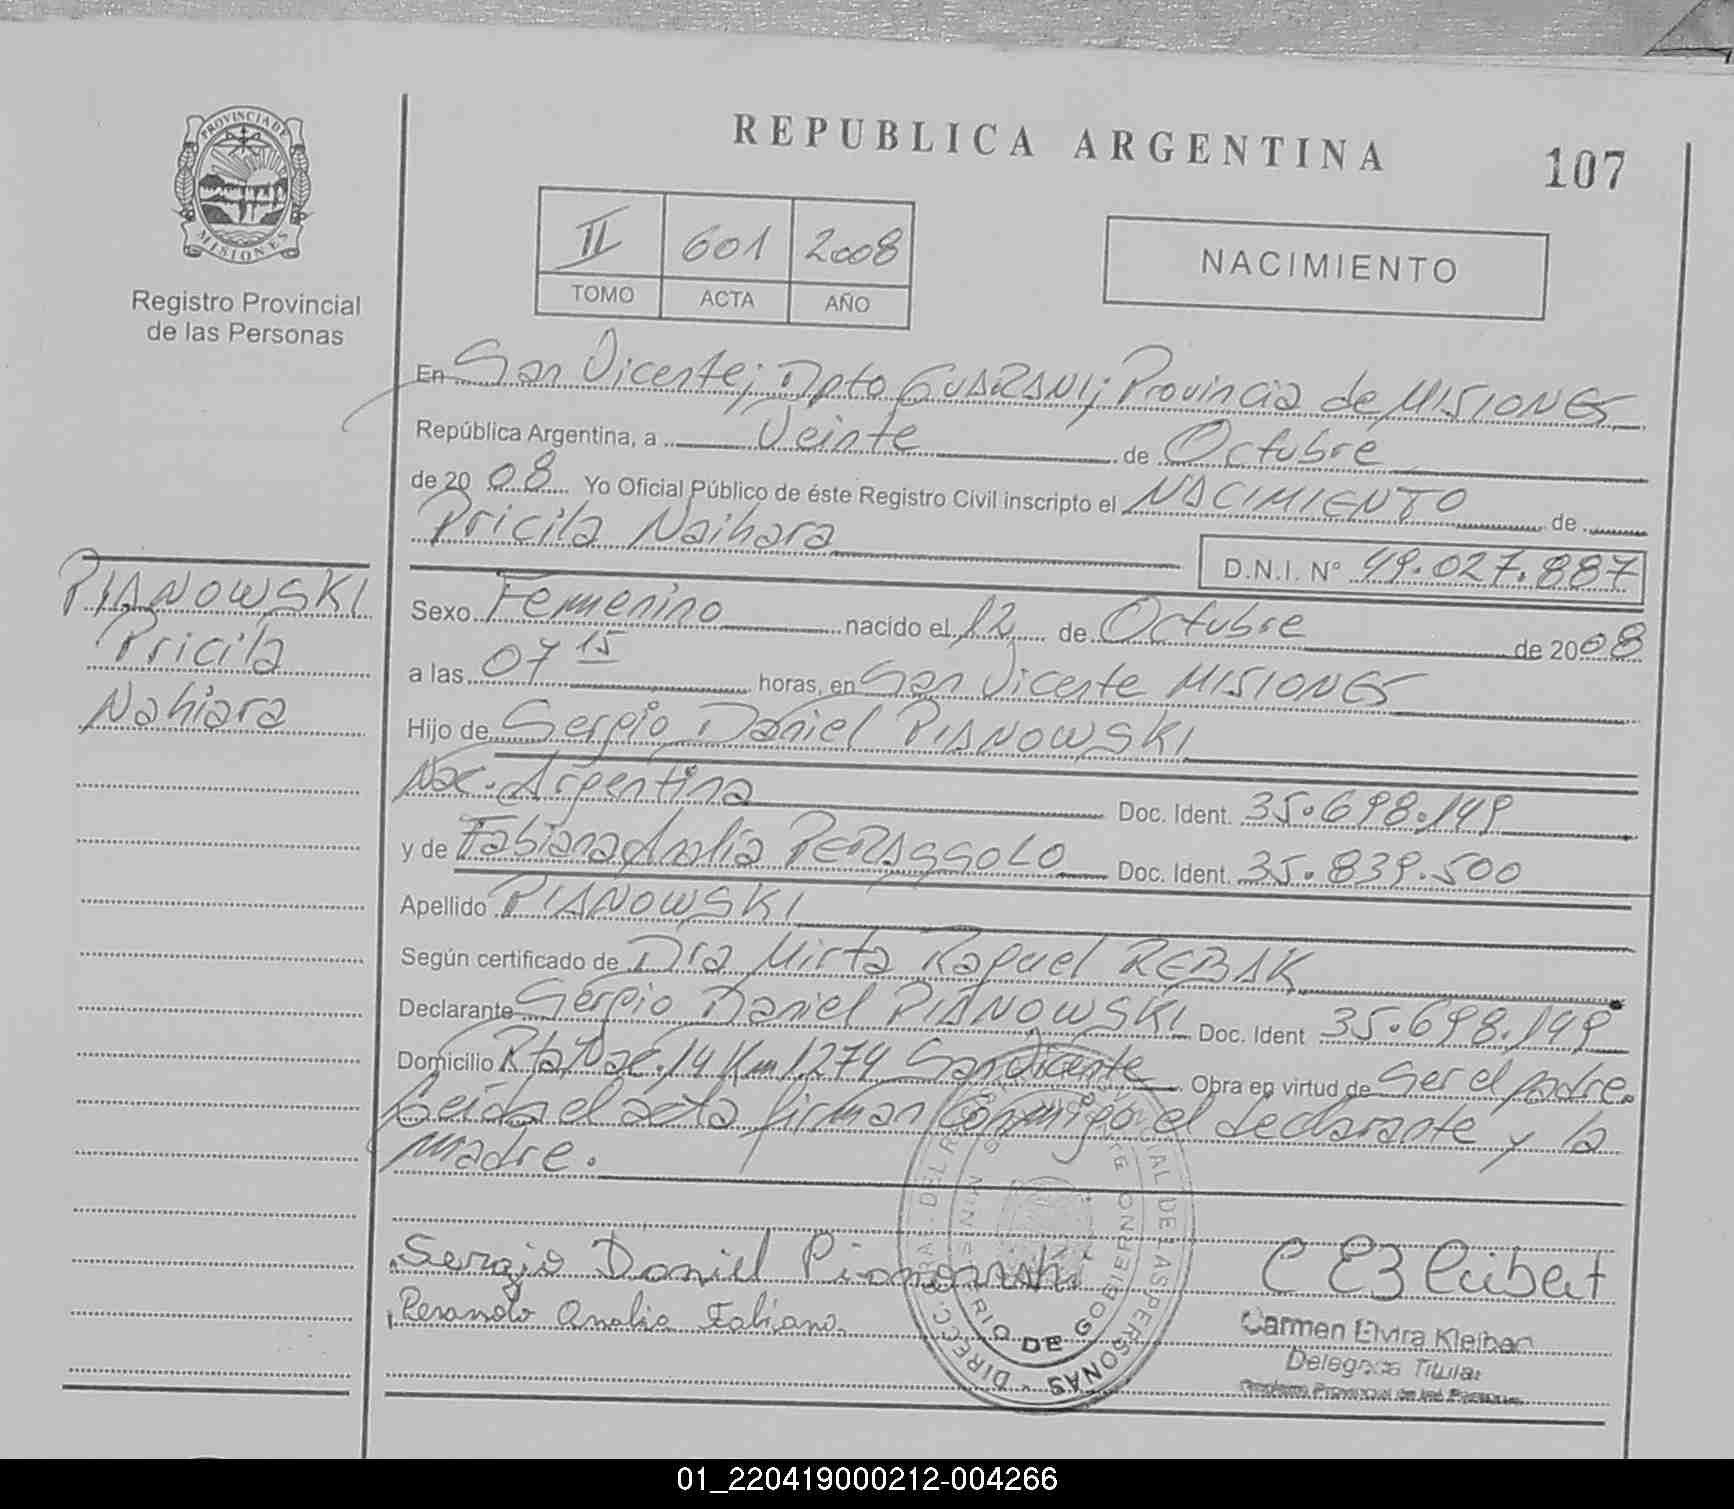 PROVINCIA DE
MISIONES
Registro Provincial
de las Personas
REPUBLICA ARGENTINA
107
II 601 2008
TOMO ACTA AÑO
NACIMIENTO
En San Vicente; Dpto GUARANI; Provincia de MISIONES
República Argentina, a Veinte de Octubre
de 20 08 Yo Oficial Público de éste Registro Civil inscripto el NACIMIENTO de
Pricila Naihara
D.N.I. N° 49.027.887
PIANOWSKI
Pricila
Nahiara
Sexo Femenino nacido el 12 de Octubre de 2008
a las 07 15 horas, en San Vicente MISIONES
Hijo de Sergio Daniel PIANOWSKI
Nac. Argentina Doc. Ident. 35.698.149
y de Fabiana Analia Doc. Ident. 35.839.500
Apellido PIANOWSKI
Según certificado de Dra Mirta Raquel REBAK
Declarante Sergio Daniel PIANOWSKI Doc. Ident 35.698.149
Domicilio Rta Nac. 14 Km 1.274 San Vicente Obra en virtud de Ser el padre.
Leida el acta firman conmigo el declarante y la
madre.
Sergio Daniel Pianowski
Analia Fabiana
Carmen Elvira
Delegada Titular
Registro Provincial de las Personas
DE GOBIERNO
DE LAS PERSONAS
01_220419000212-004266